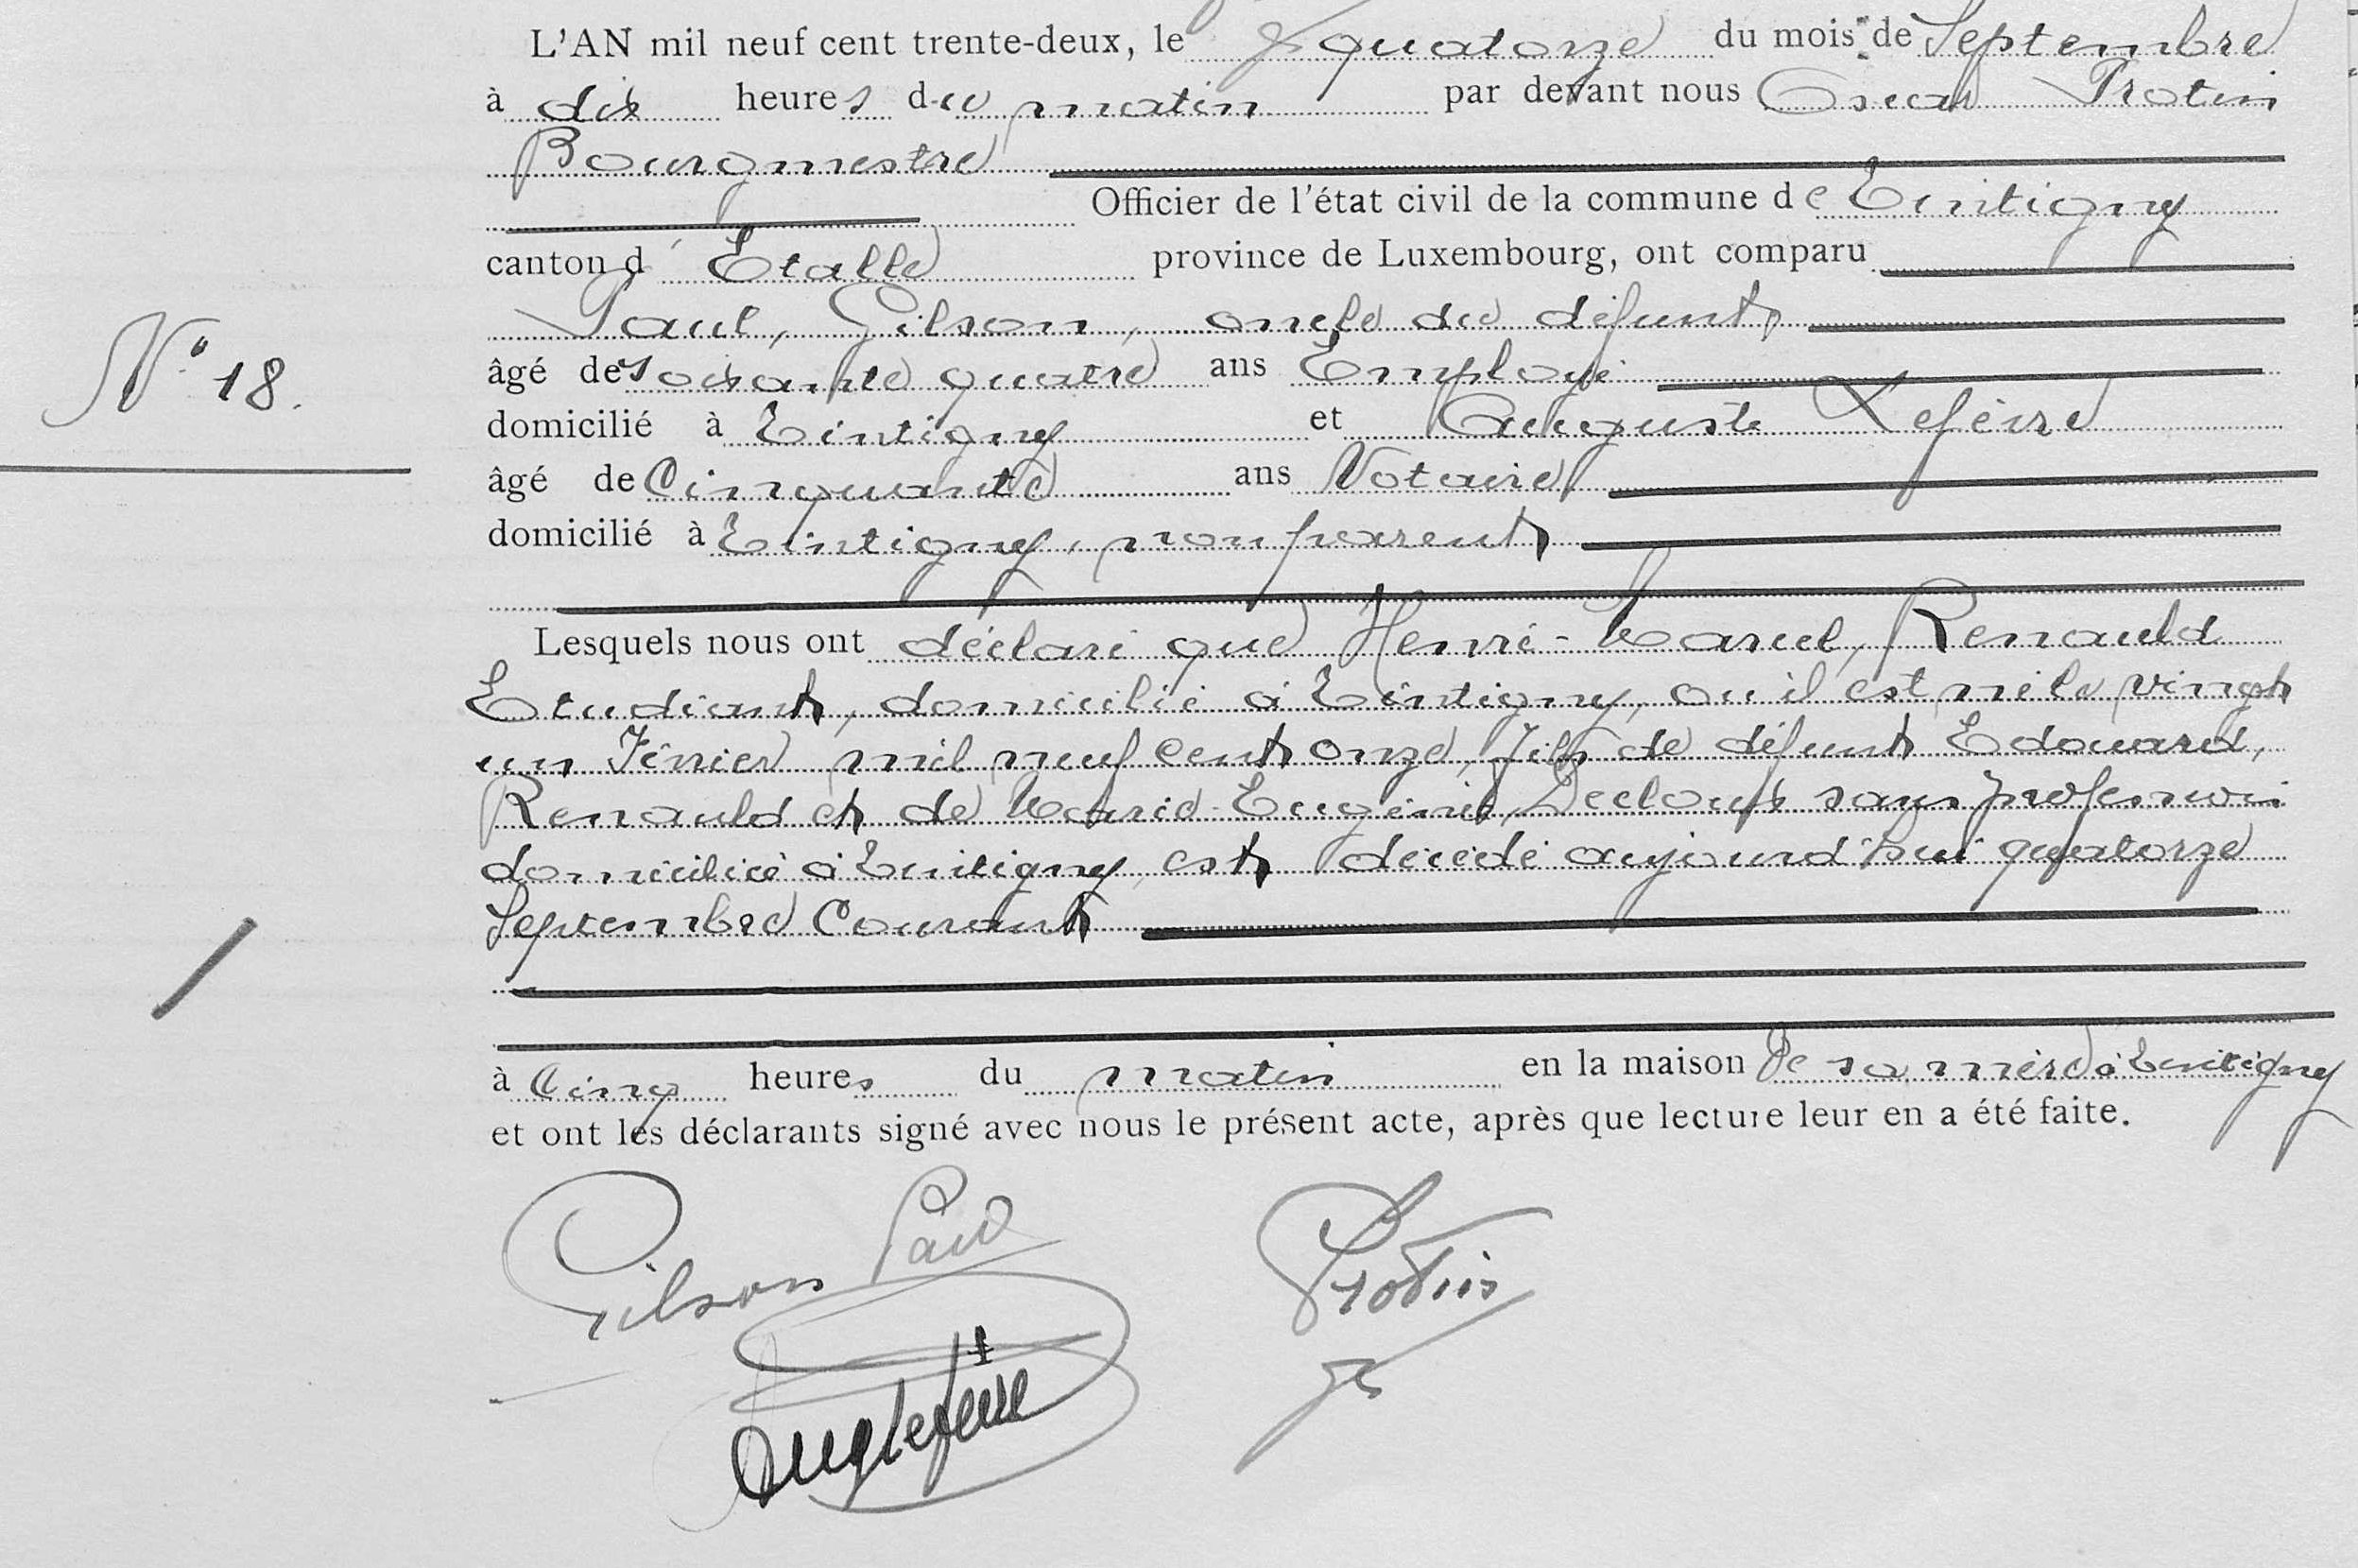 L'AN mil neuf cent trente-deux, le quatorze du mois de Septembre
à dix heures du matin par devant nous Oscar Protin
Bourgmestre
Officier de l'état civil de la commune de Tintigny
canton d'Etalle province de Luxembourg, ont comparu
Paul, Gilson, oncle du défunt
N° 18.
âgé de soixante quatre ans Employé
domicilié à Tintigny et Auguste Lefèvre
âgé de Cinquante ans Notaire
domicilié à Tintigny, non parent
Lesquels nous ont déclaré que Henri-Marcel, Renauld
Etudiant, domicilié à Tintigny, ou il est né le vingt
un Février mil neuf cent onze, fils de défunt Edouard,
Renauld et de Marie-Eugénie, Decloux sans profession
domiciliée à Tintigny, est décédé aujourd'hui quatorze
Septembre Courant
à Cinq heures du matin en la maison de sa mère à Tintigny
et ont les déclarants signé avec nous le présent acte, après que lecture leur en a été faite.
Gilson Paul Protin
Aug Lefèvre